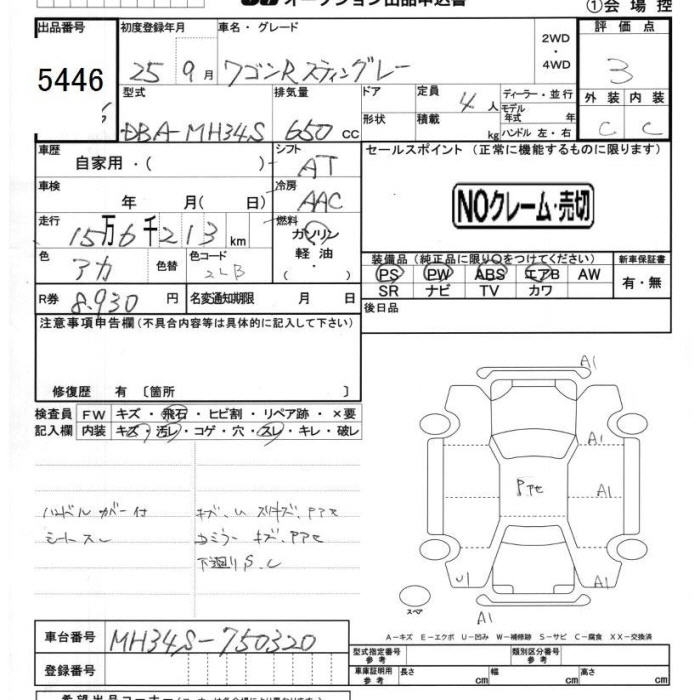 オークション出品申込書
①会場控
出品番号 初度登録年月 車名・グレード 2WD・4WD 評価点
5446 25 9月 ワゴンR スティングレー 3
型式 排気量 ドア 定員 4人 ディーラー・並行 外装 内装
DBA-MH34S 650cc 形状 積載 kg モデル年式 年 C C
ハンドル 左・右
車歴 自家用・( ) シフト AT セールスポイント (正常に機能するものに限ります)
車検 年 月( 日) 冷房 AAC
NOクレーム・売切
走行 15万6千213km 燃料 ガソリン 軽油・
色 アカ 色替 色コード 装備品(純正品に限り○をつけてください) 新車保証書
PS PW ABS エアB AW 有・無
SR ナビ TV カワ
R券 8,930円 名変通知期限 月 日 後日品
注意事項申告欄(不具合内容等は具体的に記入して下さい)
修復歴 有 〔箇所 〕
検査員 FW キズ・飛石・ヒビ割・リペア跡・×要
記入欄 内装 キズ・汚レ・コゲ・穴・スレ・キレ・破レ
A1
A1
Pアセ A1
ハンドル カバー付 キズ、U スリキズ、Pアセ
シートスレ Cミラー キズ、Pアセ
下廻りS、C
U1 A1
スペア A1
A-キズ E-エクボ U-凹み W-補修跡 S-サビ C-腐食 XX-交換済
車台番号 MH34S-750320
登録番号
型式指定番号 参考 類別区分番号 参考
車庫証明用 参考 長さ cm 幅 cm 高さ cm
希望出品コーナー